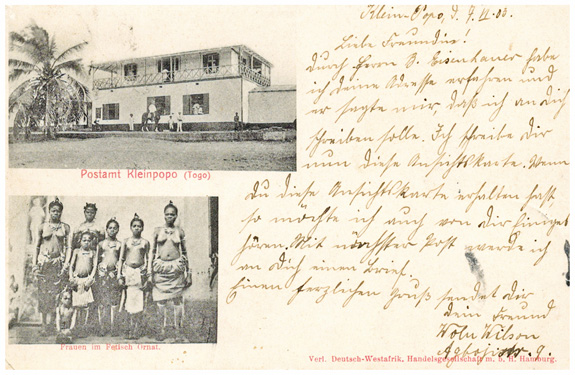 Klein-Popo, d. 9. VI. 03.
Liebe Freundin!
Durch Herrn S. Eisenhauer habe
ich deine Adresse erfahren und
er sagte mir daß ich an dich
schreiben solle. Ich schreibe dir
nun diese Ansichtskarte. Wenn
du diese Ansichtskarte erhalten hast
so möchte ich auch von dir einiges
hören. Mit nächster Post werde ich
an dich einen Brief.
Einen herzlichen Gruß sendet dir
dein Freund
Wilson
Postamt Kleinpopo (Togo)
Frauen im Fetisch Ornat.
Verl. Deutsch-Westafrik. Handelsgesellschaft m. b. H. Hamburg.